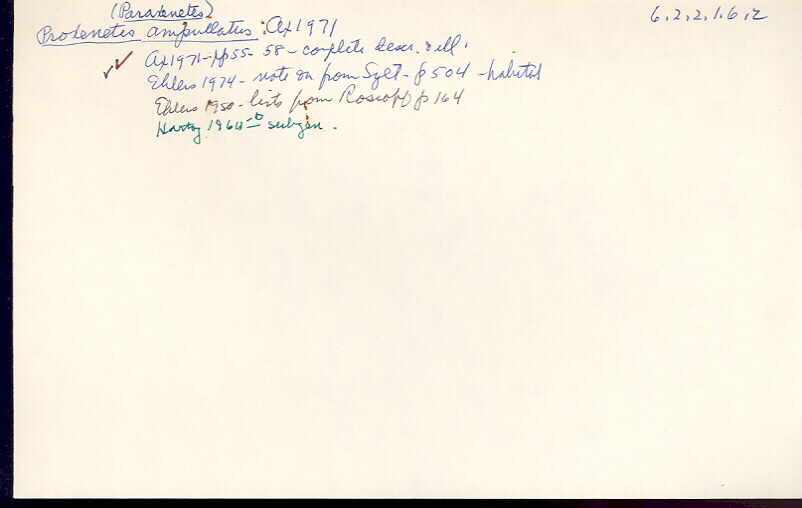 (Paraxenetes) 6.2.2.1.6.2
Proxenetes ampullatus: Ax 1971
Ax 1971 - pp 55-58 - complete descr. & ill.
Ehlers 1974 - note on from Sylt - p 504 - habitat
Ehlers 1980 - lists from Roscoff p 164
1964 b subgen.